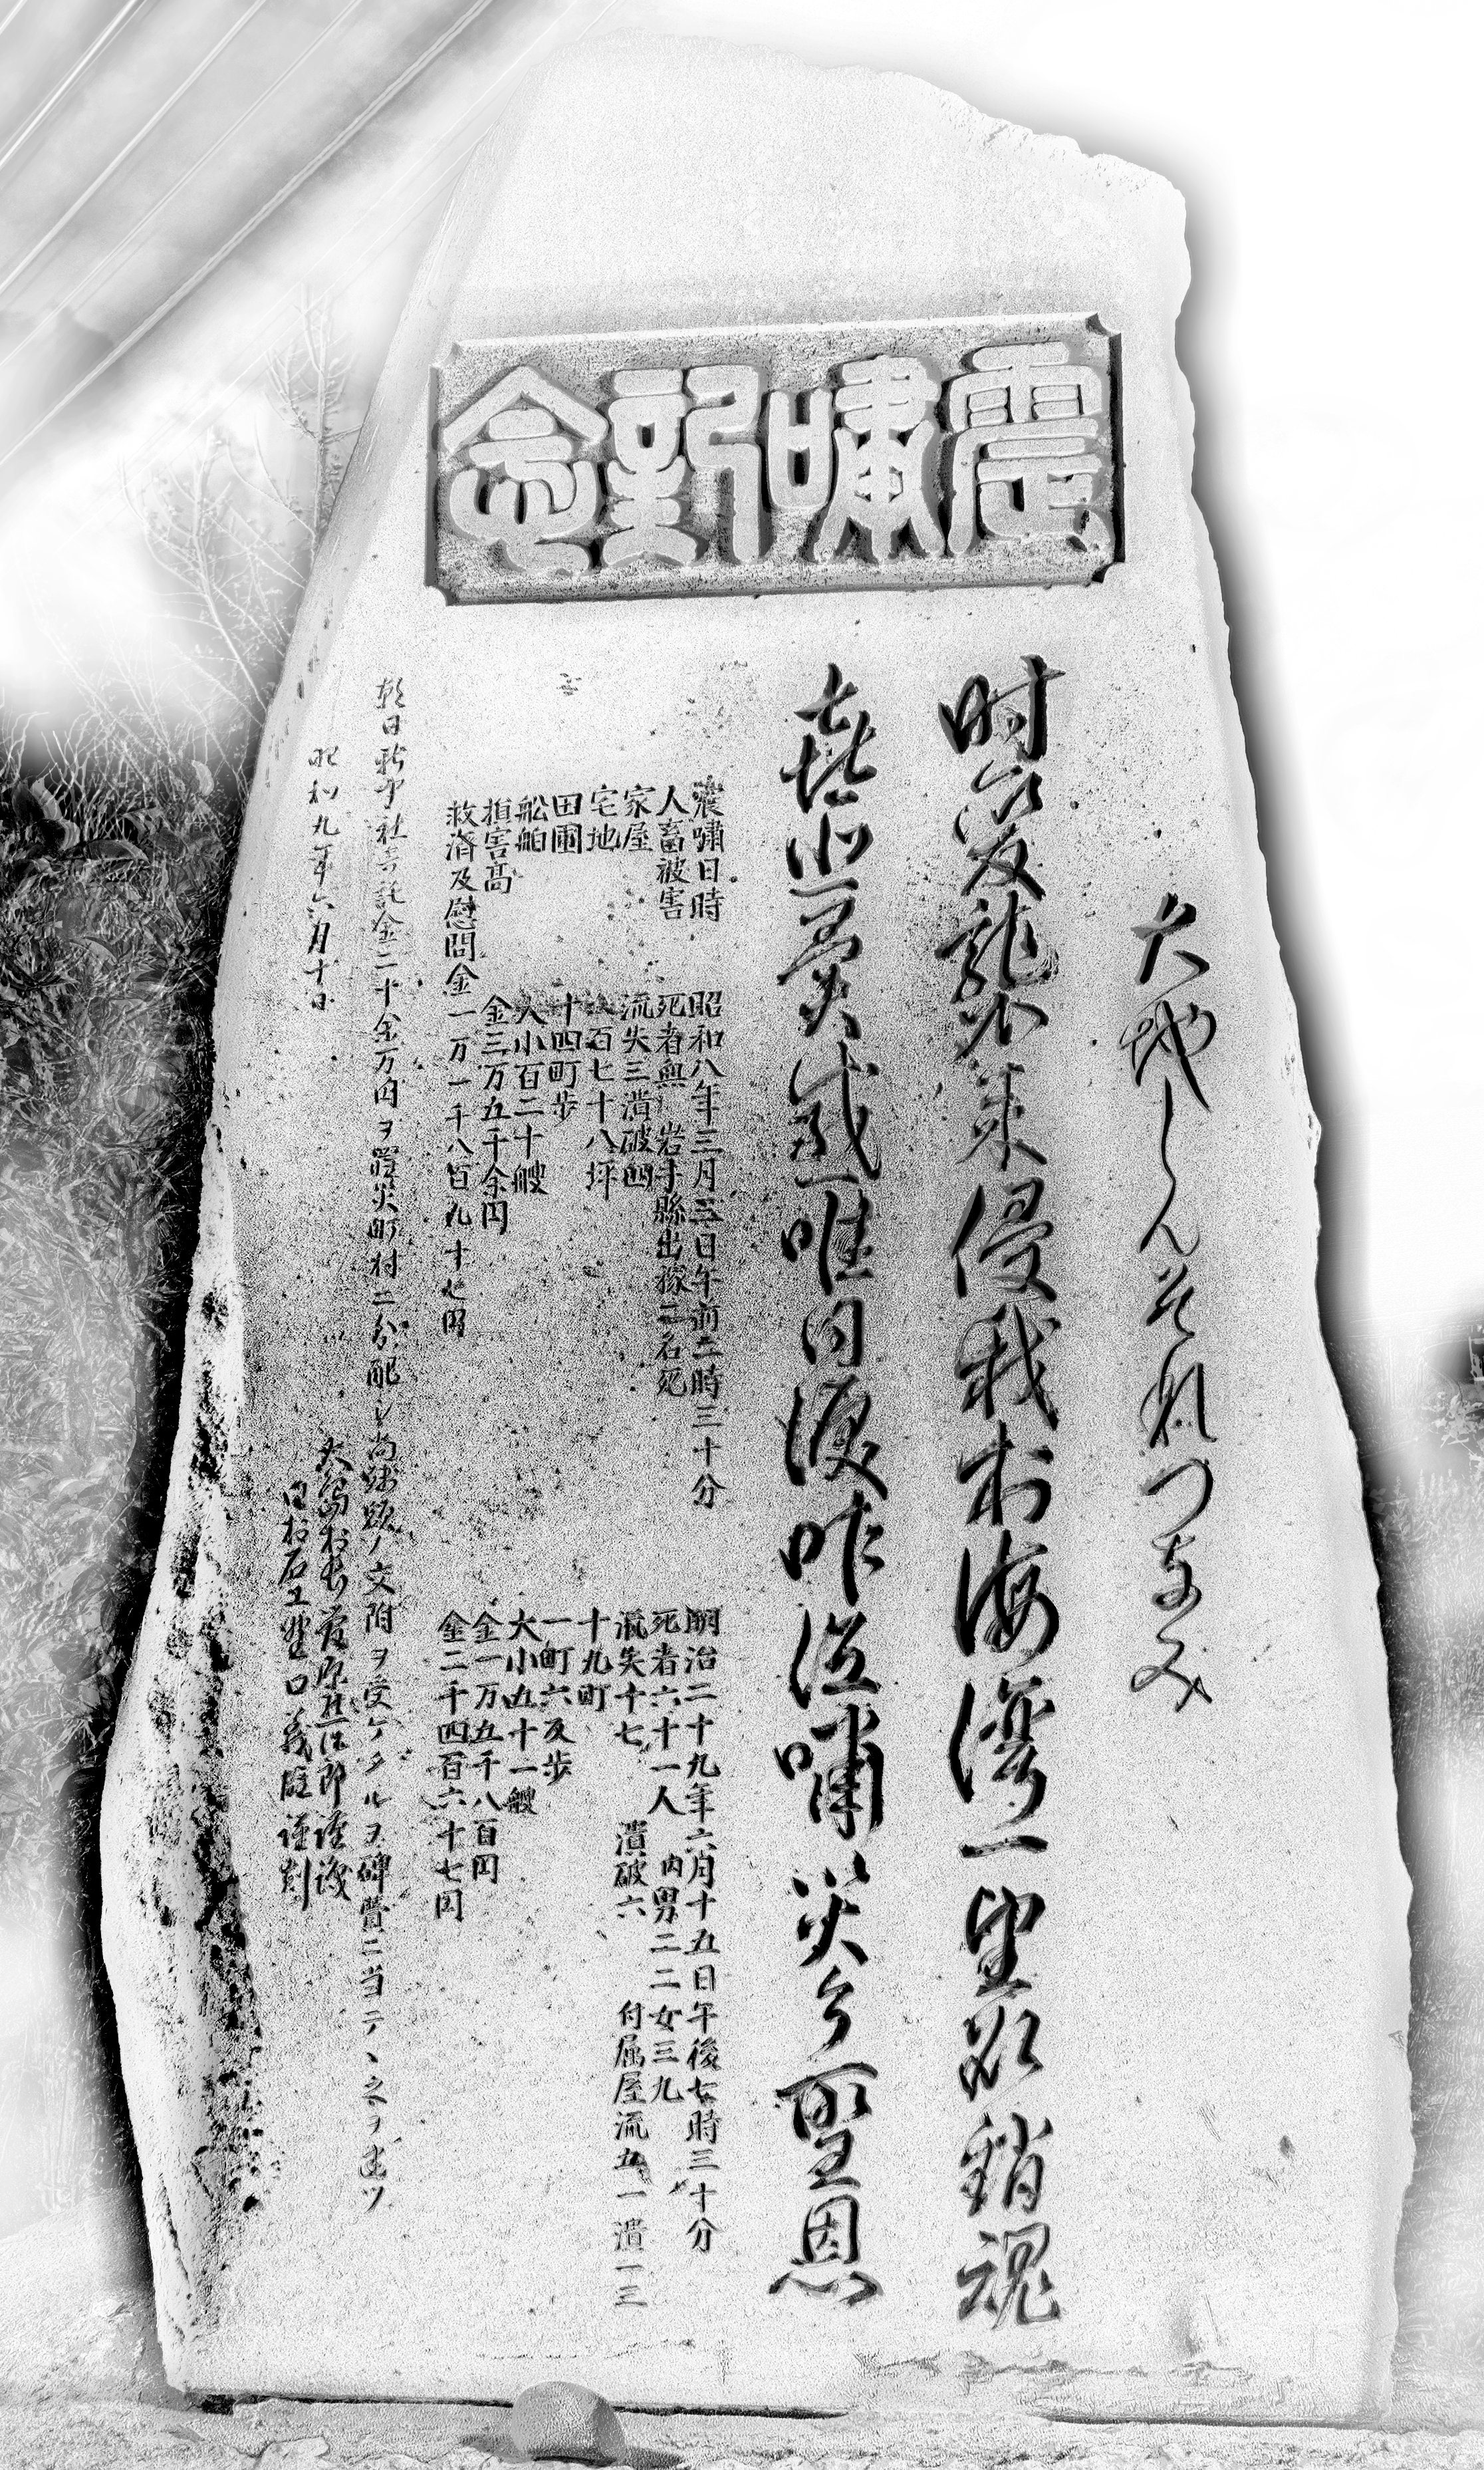 震嘯記念
大地しんそれつなみ
时 龍 来侵我村海湾一望欲銷魂
唯 回復昨 嘯災今聖恩
震嘯日時 昭和八年三月三日午前二時三十分 明治二十九年六月十五日午後七時三十分
人畜被害 死者無 岩手縣出稼二名死 死者六十一人 内男二二女三九
家屋 流失三潰破四 流失十七 潰破六 付属屋流五一潰一三
宅地 百七十八坪 十九町
田圃 十四町歩 一町六反歩
船舶 大小百二十艘 大小五十一艘
損害高 金三万五千余円 金一万五千八百円
救済及慰問金一万一千八百九十七円 金二千四百六十七円
朝日新聞社寄託金二十余万円ヲ罹災町村ニ分配シ尚残額ノ交附ヲ受ケタルヲ碑費ニ当テヽ之ヲ建ツ
昭和九年六月十日 大島村長 菅原 郎謹識
同村石工 口義 謹刻